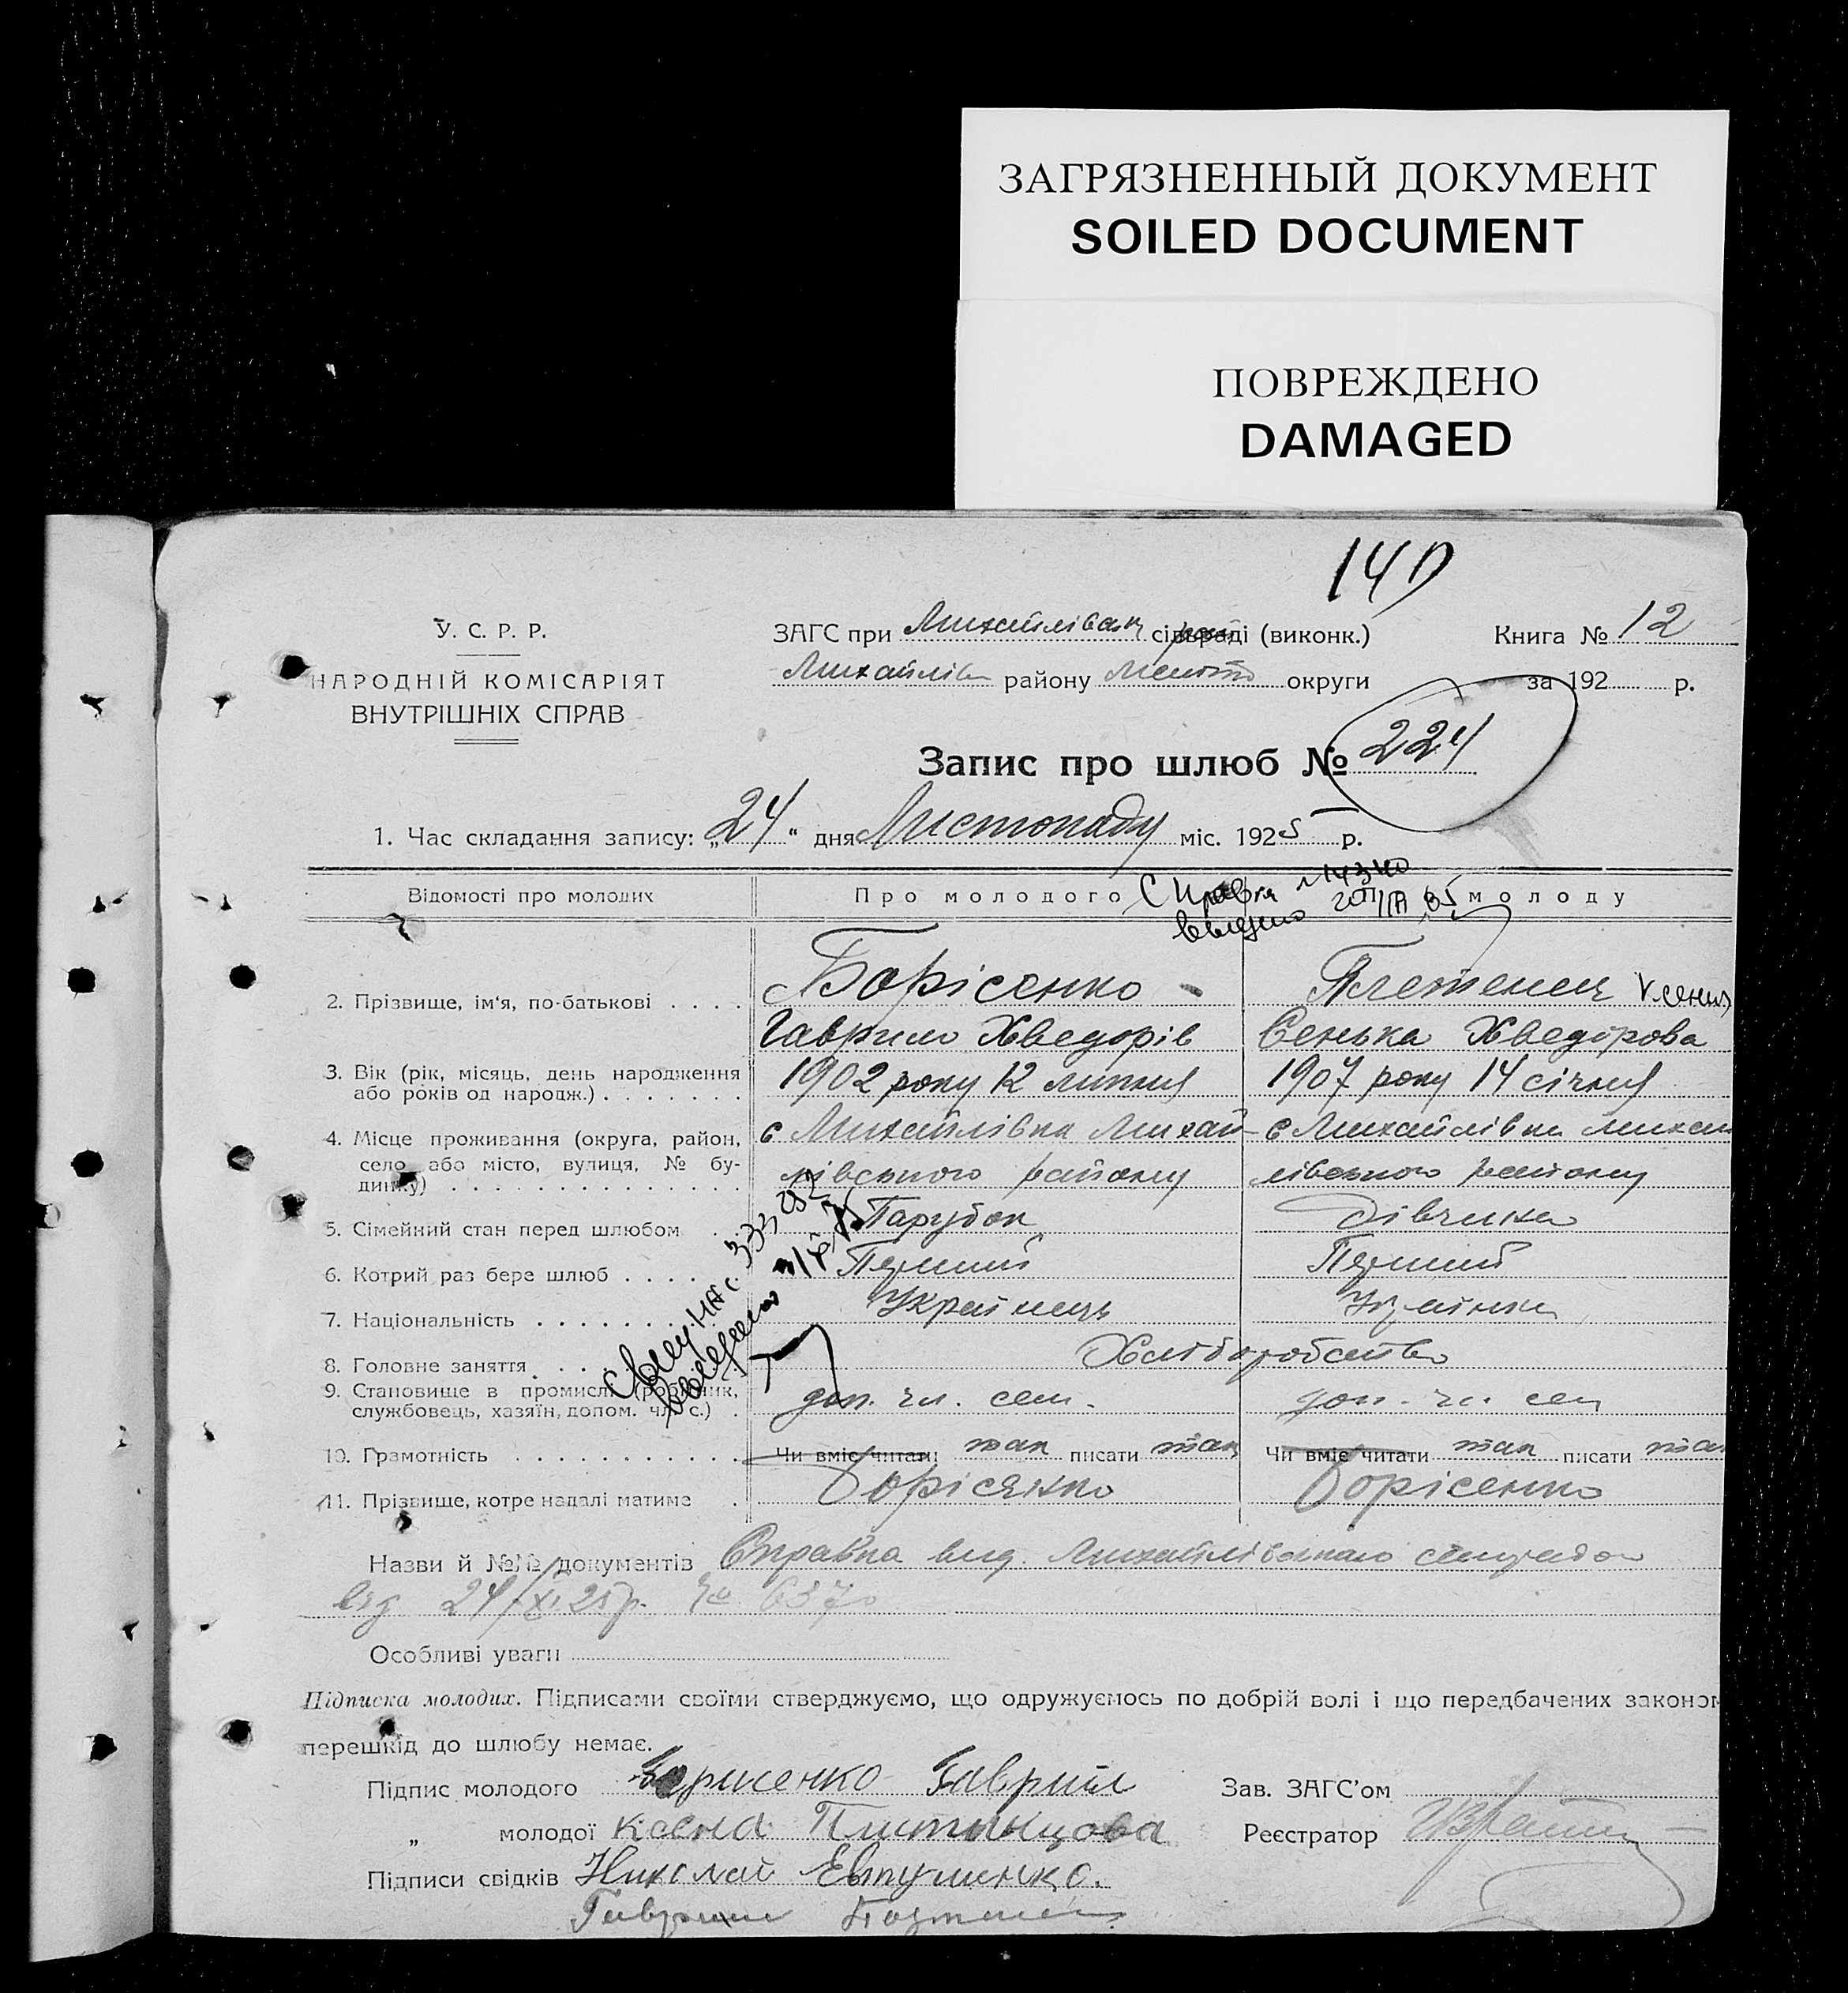 ЗАГРЯЗНЕННЫЙ ДОКУМЕНТ
SOILED DOCUMENT
ПОВРЕЖДЕНО
DAMAGED
У. С. Р. Р.
НАРОДНІЙ КОМІСАРІЯТ
ВНУТРІШНІХ СПРАВ
ЗАГС при Михайлівськ сільраді (виконк.)
Книга № 12
Михайлівс району округи
за 192 р.
Запис про шлюб № 224
1. Час складання запису: „24“ дня Листопаду міс. 1925 р.
Відомості про молодих
Про молодого
Про молоду
Справка
выдано
2. Прізвище, ім'я, по-батькові . . . . Борісенко Плетенец Ксения
Гаврило Хведорів Сенька Хведорова
3. Вік (рік, місяць, день народження 1902 року 12 липня 1907 року 14 січня
або років од народж.) . . . . . . .
4. Місце проживання (округа, район, с Михайлівка Михай- с Михайлівка михай
село або місто, вулиця, № бу- лівського району лівського району
динку) . . . . . . . . . . . . . .
5. Сімейний стан перед шлюбом . . Парубок Дівчина
6. Котрий раз бере шлюб . . . . . Перший Перший
7. Національність . . . . . . . . . Українець Українка
8. Головне заняття . . . Хліборобство
9. Становище в промислі (робітник, доп. чл. сем. доп. чл. сем
службовець, хазяїн, допом. чл. с.) .
10. Грамотність . . . . . . . . . . . Чи вміє читати так писати так Чи вміє читати так писати так
11. Прізвище, котре надалі матиме . Борісенко Борісенко
Назви й №№ документів Справка вид. Михайлівським сельрадою
від 24/XI 25 р. № 6370
Особливі уваги
Підписка молодих. Підписами своїми стверджуємо, що одружуємось по добрій волі і що передбачених законом
перешкід до шлюбу немає.
Підпис молодого Борисенко Гаврил
Зав. ЗАГС'ом
„ молодої Ксена
Реєстратор
Підписи свідків Николай Евтушенко.
Гаврило